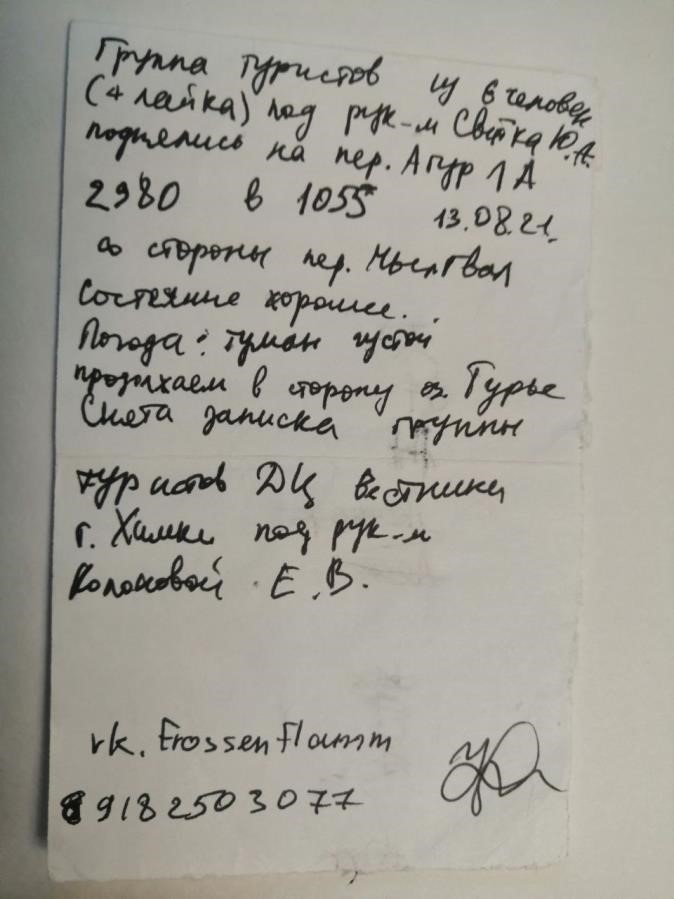 Группа туристов из 6 человек
(+ лайка) под рук-м Свитка Ю.А.
поднялись на пер. Агур 1А
2980 в 1055 13.08.21.
со стороны пер.
Состояние хорошее.
Погода: туман густой
продолжаем в сторону оз. Турье
Снята записка группы
туристов ДЦ Вестники
г. Химки под рук-м
Е.В.
vk. Erossenflamm
89182503077